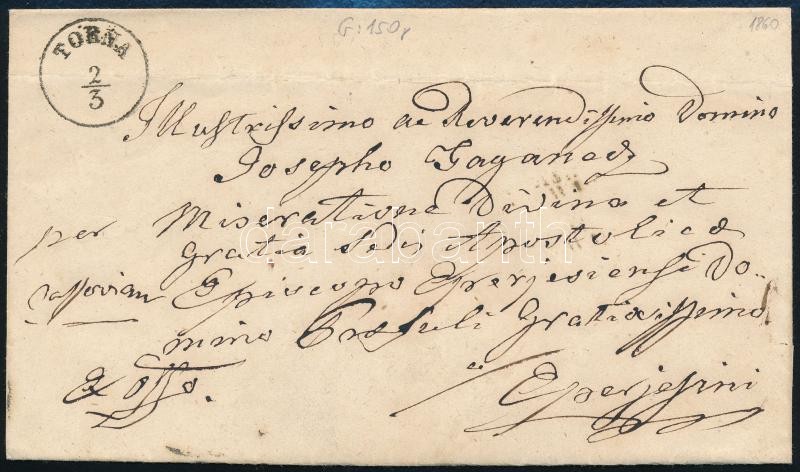 G: 150,
1860
TORNA
2
3
Illustrissimo ac Reverendissimo Domino
Josepho Gaganecz
per Miseratione Divina et
Gratia Sedis Apostolicae
Cassoviam Episcopo Eperjesiensi Do-
mino Praesuli Gratiosissimo
Ex offo. Eperjesini
darabanth